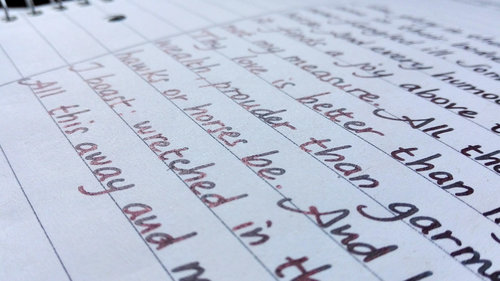 every humou
finds a joy above
my measure. All the
Thy love is better than
wealth, prouder than garm
hawks or horses be. And
I boast: wretched in th
All this away and m